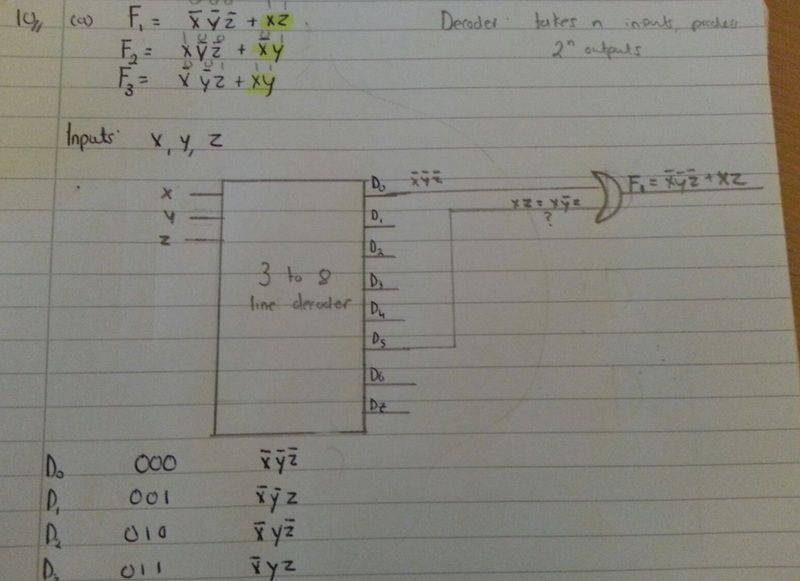 19,, (a) F₁ = x̄ ȳ z̄ + xz
0 0 0 1 1
F₂ = x ȳ z̄ + x̄ y
1 0 0 0 1
F₃ = x̄ ȳ z + xy
0 0 1 1 1
Decoder: takes n inputs, produces
2ⁿ outputs
Inputs: x, y, z
x
y
z
3 to 8
line decoder
D₀ x̄ȳz̄
D₁
D₂
D₃
D₄
D₅
D₆
D₇
xz = xȳz
?
F₁ = x̄ȳz̄ + xz
D₀ 000 x̄ȳz̄
D₁ 001 x̄ȳz
D₂ 010 x̄yz̄
D₃ 011 x̄yz